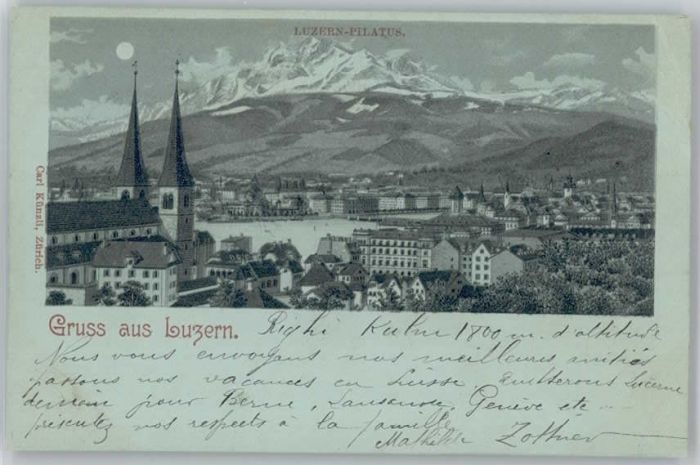 LUZERN-PILATUS.
Carl Künzli, Zürich.
Gruss aus Luzern. Righi Kulm 1800 m. d'altitude
Nous vous envoyons nos meilleures amitiés
passons nos vacances en Suisse, quitterons Lucerne
demain pour Berne, Lausanne, Genève etc
présentez nos respects à la famille
Mathilde